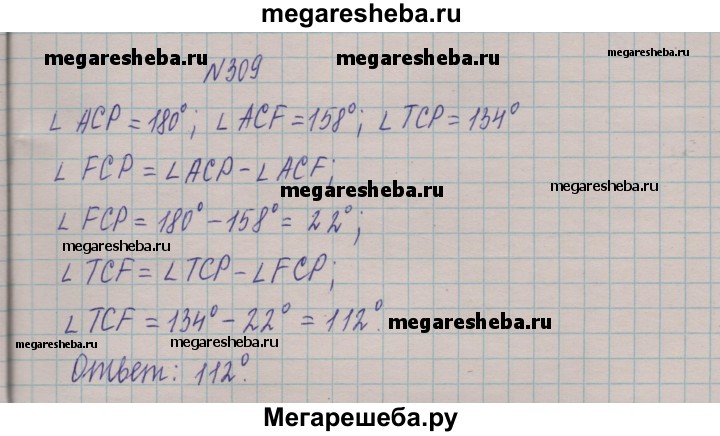 megaresheba.ru
megaresheba.ru megaresheba.ru megaresheba.ru
N309
∠ ACP = 180°; ∠ ACF = 158°; ∠ TCP = 134°
∠ FCP = ∠ACP - ∠ACF;
megaresheba.ru megaresheba.ru
∠ FCP = 180° - 158° = 22°;
megaresheba.ru
∠ TCF = ∠TCP - ∠FCP;
∠ TCF = 134° - 22° = 112°.
megaresheba.ru megaresheba.ru megaresheba.ru
Ответ: 112°.
Мегарешеба.ру